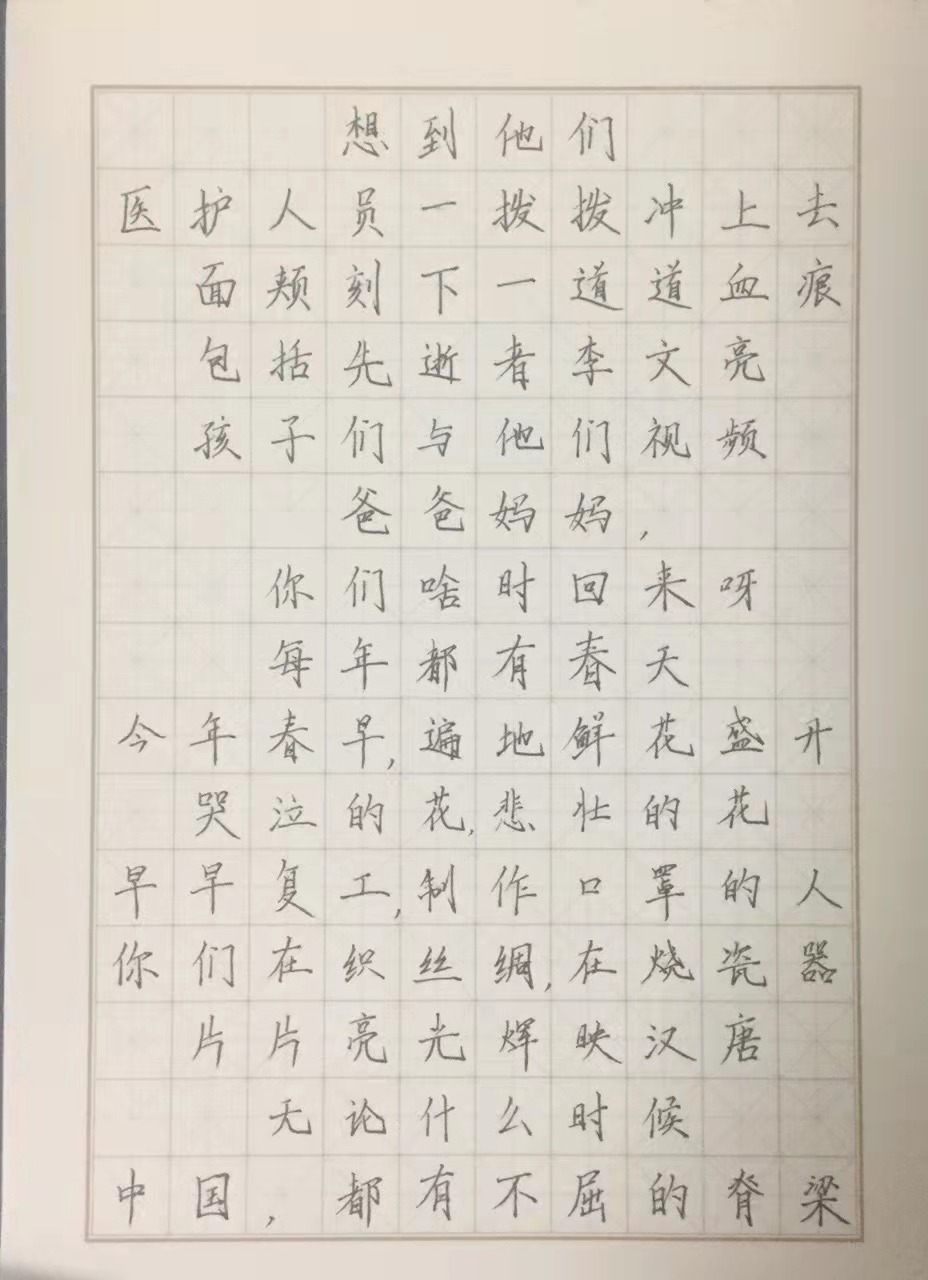 想到他们
医护人员一拨拨冲上去
面颊刻下一道道血痕
包括先逝者李文亮
孩子们与他们视频
爸爸妈妈,
你们啥时回来呀
每年都有春天
今年春早,遍地鲜花盛开
哭泣的花,悲壮的花
早早复工,制作口罩的人
你们在织丝绸,在烧瓷器
片片亮光辉映汉唐
无论什么时候
中国,都有不屈的脊梁